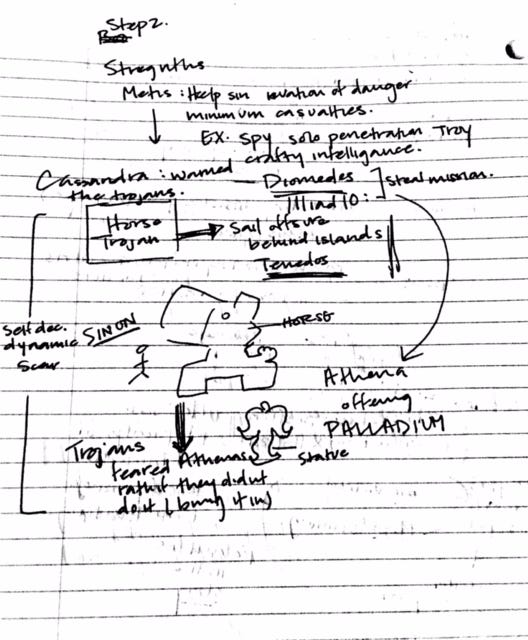 Step 2.
Stregnths
Metis : Help sin iavation of danger
minimum casualties.
EX. spy solo penetration Troy
crafty intelligance.
Cassandra : warned
the trojans.
Diomedes
Illiad 10 :
steal mission.
Horse
Trojan
Sail offsure
behind islands
Tenedos
Self dec.
dynamic
scar
SINON
HORSE
Athena
offering
PALLADIUM
Statue
Trojans
feared Athenas
rath if they didnt
do it ( bring it in)